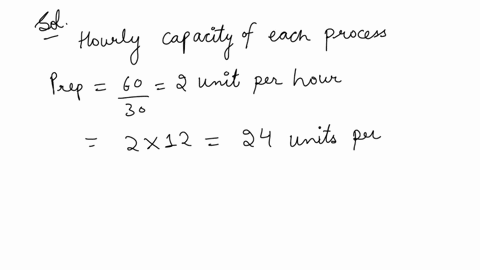 Sol.
Hourly capacity of each process
Prep = 60/30 = 2 unit per hour
= 2 × 12 = 24 units per